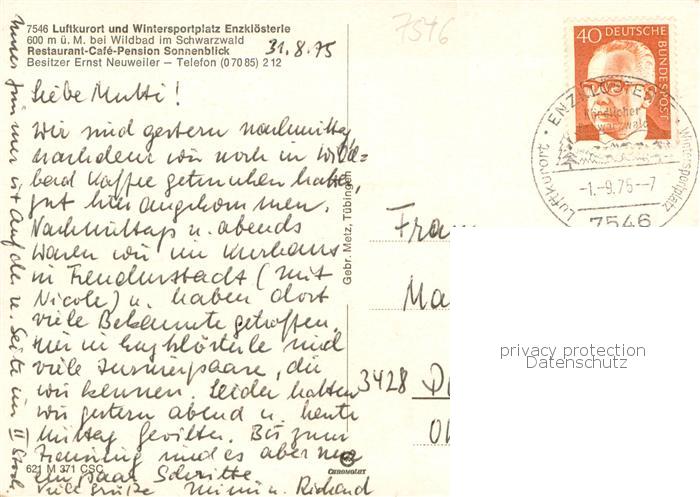 7546 Luftkurort und Wintersportplatz Enzklösterle
600 m ü. M. bei Wildbad im Schwarzwald
Restaurant-Café-Pension Sonnenblick
Besitzer Ernst Neuweiler — Telefon (0 70 85) 2 12
31.8.75
7546
Liebe Mutti!
Wir sind gestern nachmittag,
nachdem wir noch in Wild=
bad Kaffee getrunken haben,
gut hier angekommen.
Nachmittags u. abends
waren wir im Kurhaus
in Freudenstadt (mit
Nicole) u. haben dort
viele Bekannte getroffen.
Hier in Enzklösterle sind
viele Turnierpaare, die
wir kennen. Leider hatten
wir gestern abend u. heute
Mittag Gewitter. Bis zum
Training sind es aber nur
ein paar Schritte.
Viele Grüße Mimi u. Richard
Unser Zimmer ist auf der u. Seite im II Stock
621 M 371 CSC
Gebr. Metz, Tübingen
CHROMOLUX
40 DEUTSCHE
BUNDESPOST
ENZKLÖSTERLE
Nördlicher
Schwarzwald
Luftkurort
Wintersportplatz
-1.-9.75--7
7546
Frau
Ma
3428 D
privacy protection
Datenschutz